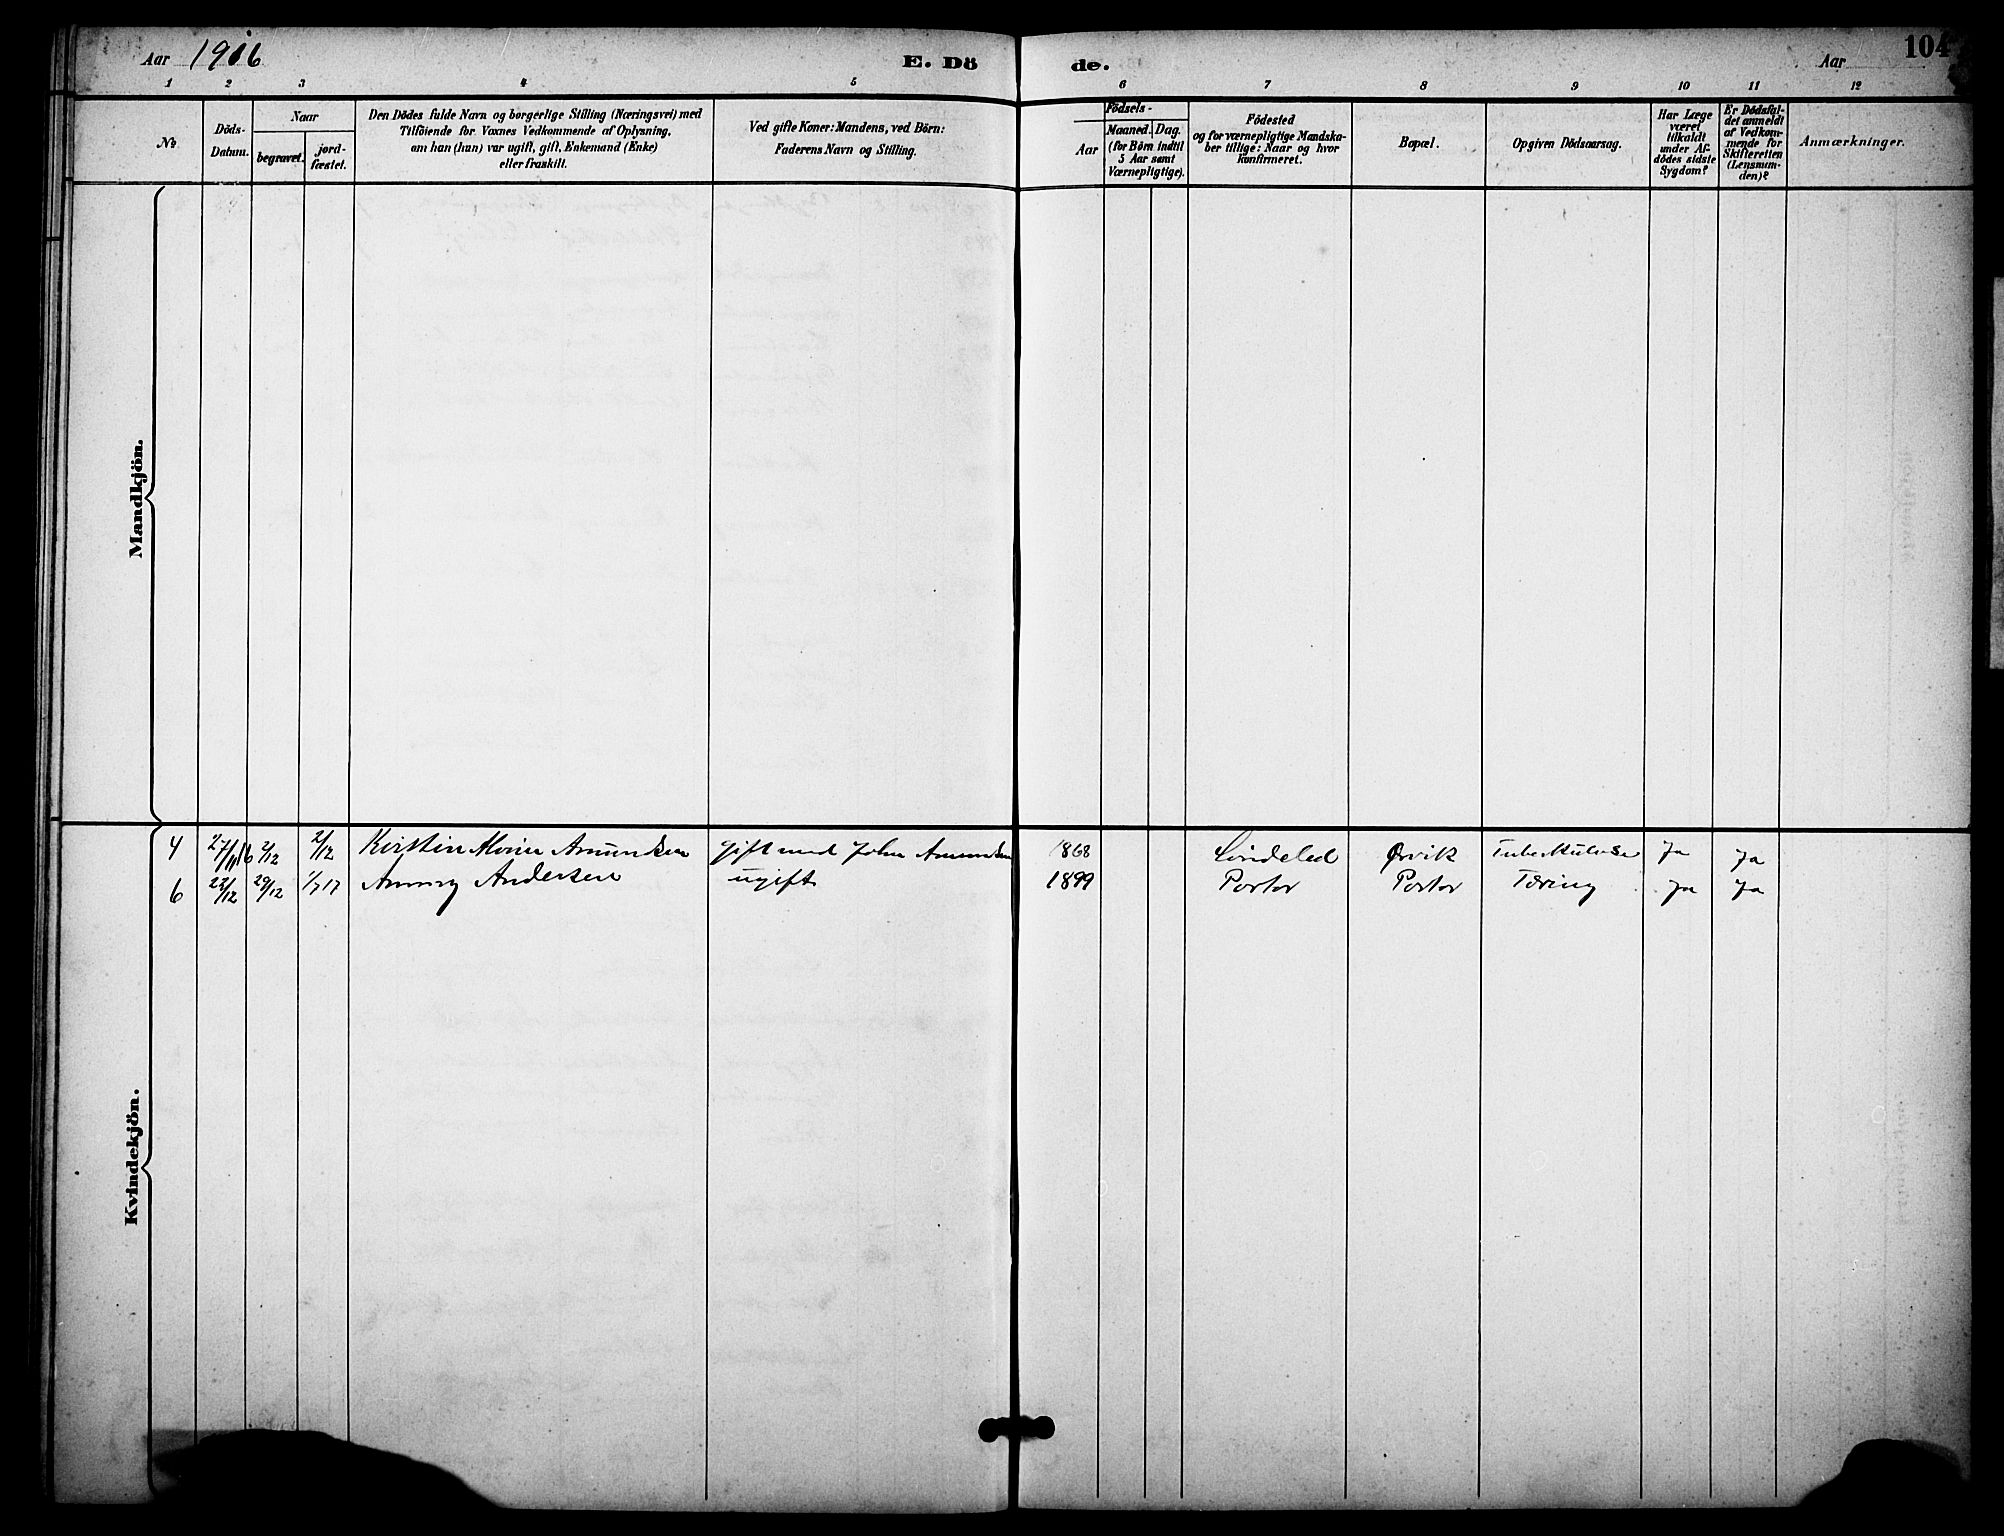 Aar 1916 E. Dö de. Aar 104
1 2 3 4 5 6 7 8 9 10 11 12
No.
Döds-
Datum.
Naar
begravet.
jord-
fæstet.
Den Dödes fulde Navn og borgerlige Stilling (Næringsvei) med
Tilföiende for Voxnes Vedkommende af Oplysning,
om han (hun) var ugift, gift, Enkemand (Enke)
eller fraskilt.
Ved gifte Koner: Mandens, ved Börn:
Faderens Navn og Stilling.
Födsels-
Aar
Maaned. Dag.
(for Börn indtil
5 Aar samt
Værnepligtige).
Födested
og for værnepligtige Mandska-
ber tillige: Naar og hvor
konfirmeret.
Bopæl.
Opgiven Dödsaarsag.
Har Læge
været
tilkaldt
under Af-
dödes sidste
Sygdom?
Er Dödsfal-
det anmeldt
af Vedkom-
mende for
Skifteretten
(Lensman-
den)?
Anmærkninger.
Mandkjön.
4 27/11 16 2/12 2/12 Kirstin Amundsen gift med John Amundsen 1868 Søndeled Ørvik Tuberkulose Ja Ja
6 22/12 29/12 1/7 17 Andersen ugift 1899 Portør Portør Tæring Ja Ja
Kvindekjön.